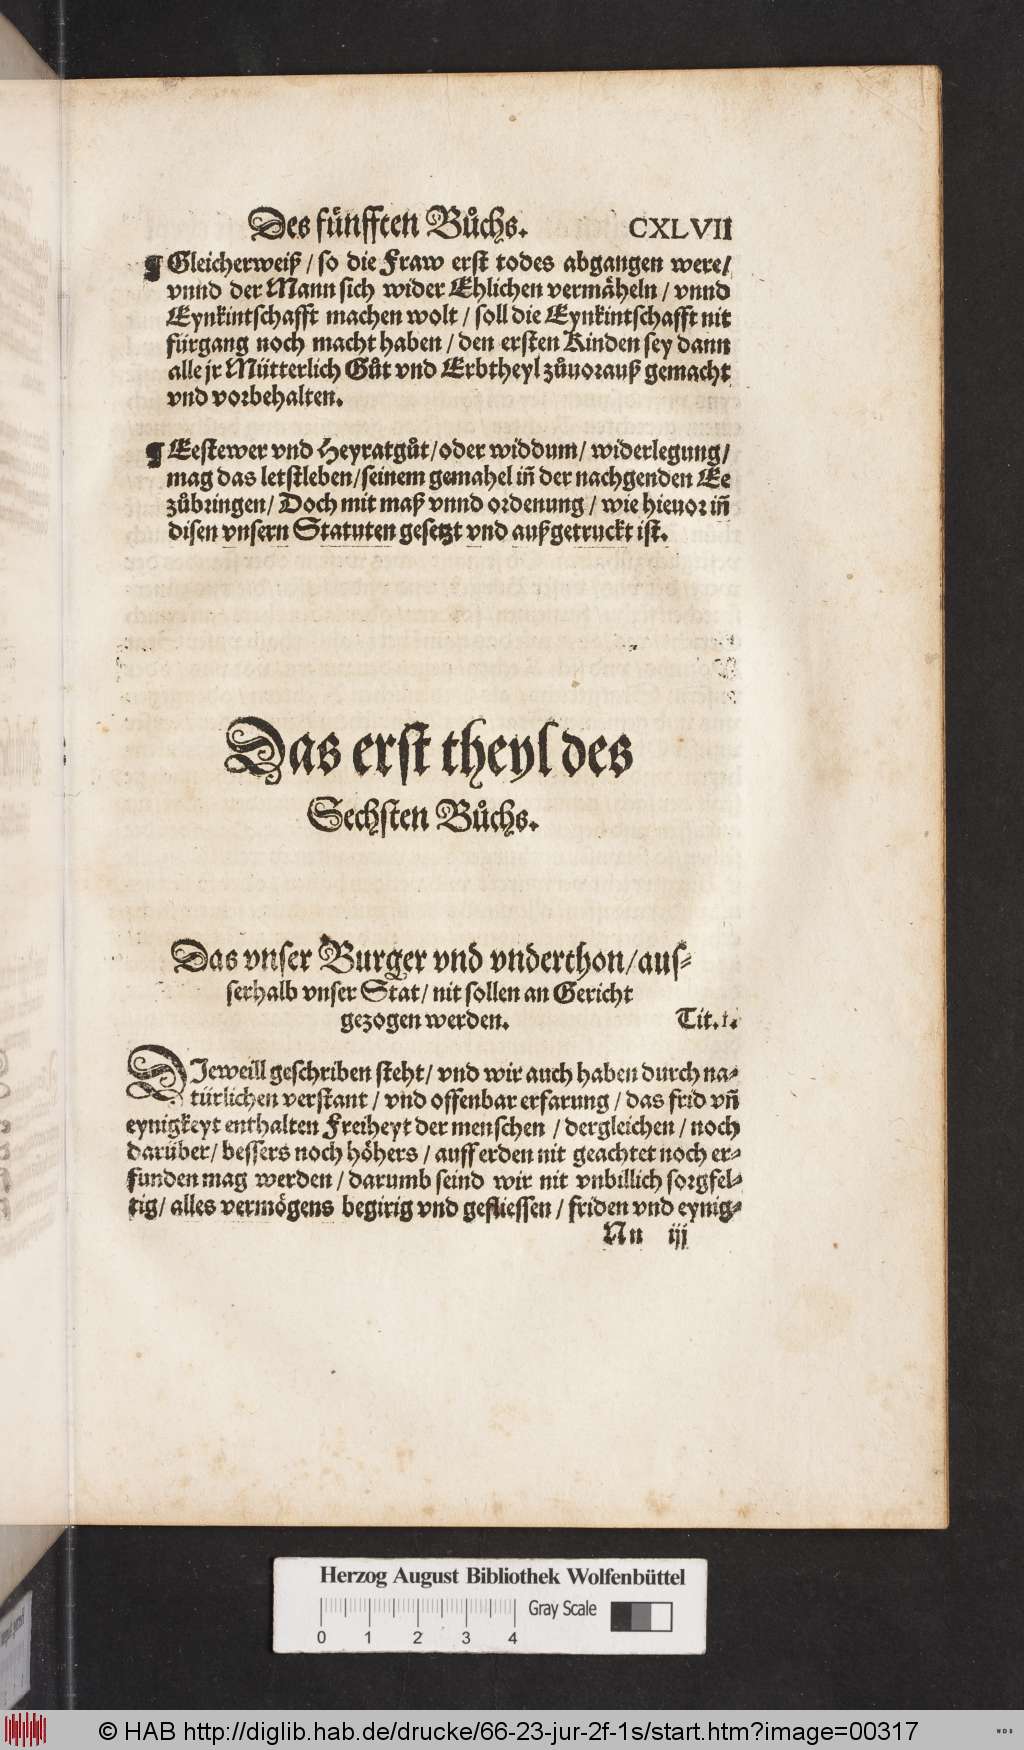 Des fünfften Bůchs. CXLVII
¶ Gleicherweiß / so die Fraw erst todes abgangen were /
vnnd der Mann sich wider Ehlichen vermäheln / vnnd
Eynkintschafft machen wolt / soll die Eynkintschafft nit
fürgang noch macht haben / den ersten Kinden sey dann
alle jr Mütterlich Gůt vnd Erbtheyl zůuorauß gemacht
vnd vorbehalten.
¶ Eestewer vnd Heyratgůt / oder widdum / widerlegung /
mag das letstleben / seinem gemahel iñ der nachgenden Ee
zůbringen / Doch mit maß vnnd ordenung / wie hieuor iñ
disen vnsern Statuten gesetzt vnd außgetruckt ist.
Das erst theyl des
Sechsten Bůchs.
Das vnser Burger vnd vnderthon / aus⸗
serhalb vnser Stat / nit sollen an Gericht
gezogen werden. Tit. i.
DJeweill geschriben steht / vnd wir auch haben durch na⸗
türlichen verstant / vnd offenbar erfarung / das frid vñ
eynigkeyt enthalten Freiheyt der menschen / dergleichen / noch
darüber / bessers noch höhers / auff erden nit geachtet noch er⸗
funden mag werden / darumb seind wir nit vnbillich sorgfel⸗
tig / alles vermögens begirig vnd gefliessen / friden vnd eynig⸗
Nn iij
Herzog August Bibliothek Wolfenbüttel
Gray Scale
0 1 2 3 4
© HAB http://diglib.hab.de/drucke/66-23-jur-2f-1s/start.htm?image=00317